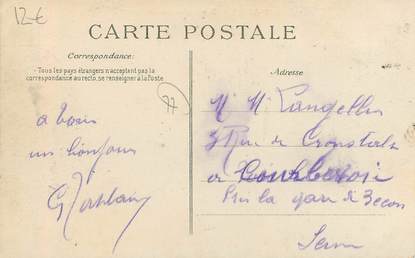 12€
CARTE POSTALE
Correspondance:
- Tous les pays étrangers n'acceptent pas la
correspondance au recto, se renseigner à la Poste
Adresse
77
M. M. Langellier
3 Rue de
a Courbevoie
la gare de Becon
Seine
un bonjour